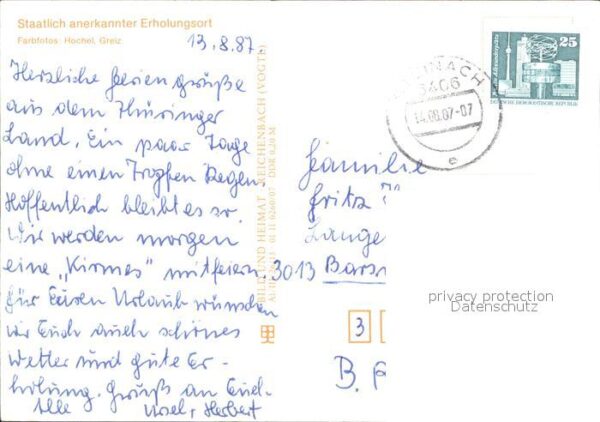 Staatlich anerkannter Erholungsort
Farbfotos: Hochel, Greiz
13.8.87
Herzliche Feriengrüße
aus dem Thüringer
Land. Ein paar Tage
ohne einen Tropfen Regen
Hoffentlich bleibt es so.
Wir werden morgen
eine „Kirmes" mitfeiern.
Für Euren Urlaub wünschen
wir Euch auch schönes
Wetter und gute Er-
holung. Gruß an Euch
alle Ursel, Herbert
BILD UND HEIMAT REICHENBACH (VOGTL)
DDR 0,20 M
25
DEUTSCHE DEMOKRATISCHE REPUBLIK
6406
14.08.87-07
e
Familie
Fritz
Lange
3013 Bars
3
B.
privacy protection
Datenschutz